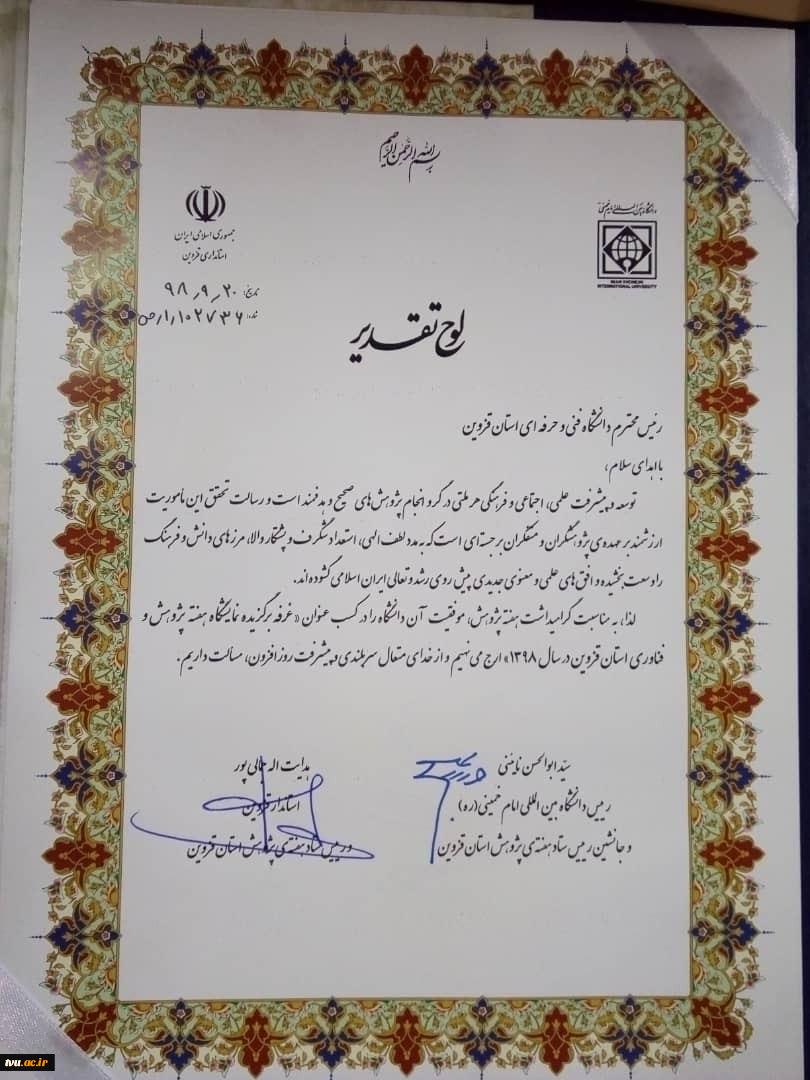 بسم الله الرحمن الرحیم
جمهوری اسلامی ایران
استانداری قزوین
تاریخ: ۹۸٫۹٫۲۰
شماره: ۱٫۱۰۲۷۳۶٫ص
دانشگاه بین‌المللی امام خمینی
IMAM KHOMEINI
INTERNATIONAL UNIVERSITY
لوح تقدیر
رئیس محترم دانشگاه فنی و حرفه ای استان قزوین
با اهدای سلام،
توسعه و پیشرفت علمی، اجتماعی و فرهنگی هر ملتی در گرو انجام پژوهش‌های صحیح و هدفمند است و رسالت تحقق این مأموریت
ارزشمند بر عهده‌ی پژوهشگران و متفکران برجسته‌ای است که به مدد لطف الهی، استعداد شگرف و پشتکار والا، مرزهای دانش و فرهنگ
را وسعت بخشیده و افق‌های علمی و معنوی جدیدی پیش روی رشد و تعالی ایران اسلامی گشوده‌اند.
لذا، به مناسبت گرامیداشت هفته پژوهش، موفقیت آن دانشگاه را در کسب عنوان «غرفه برگزیده نمایشگاه هفته پژوهش و
فناوری استان قزوین در سال ۱۳۹۸» ارج می‌نهیم و از خدای متعال سربلندی و پیشرفت روزافزون، مسألت داریم.
سیّد ابوالحسن نائینی
رییس دانشگاه بین المللی امام خمینی (ره)
و جانشین رییس ستاد هفته‌ی پژوهش استان قزوین
هدایت اله جمالی پور
استاندار قزوین
و رییس ستاد هفته‌ی پژوهش استان قزوین
tvu.ac.ir